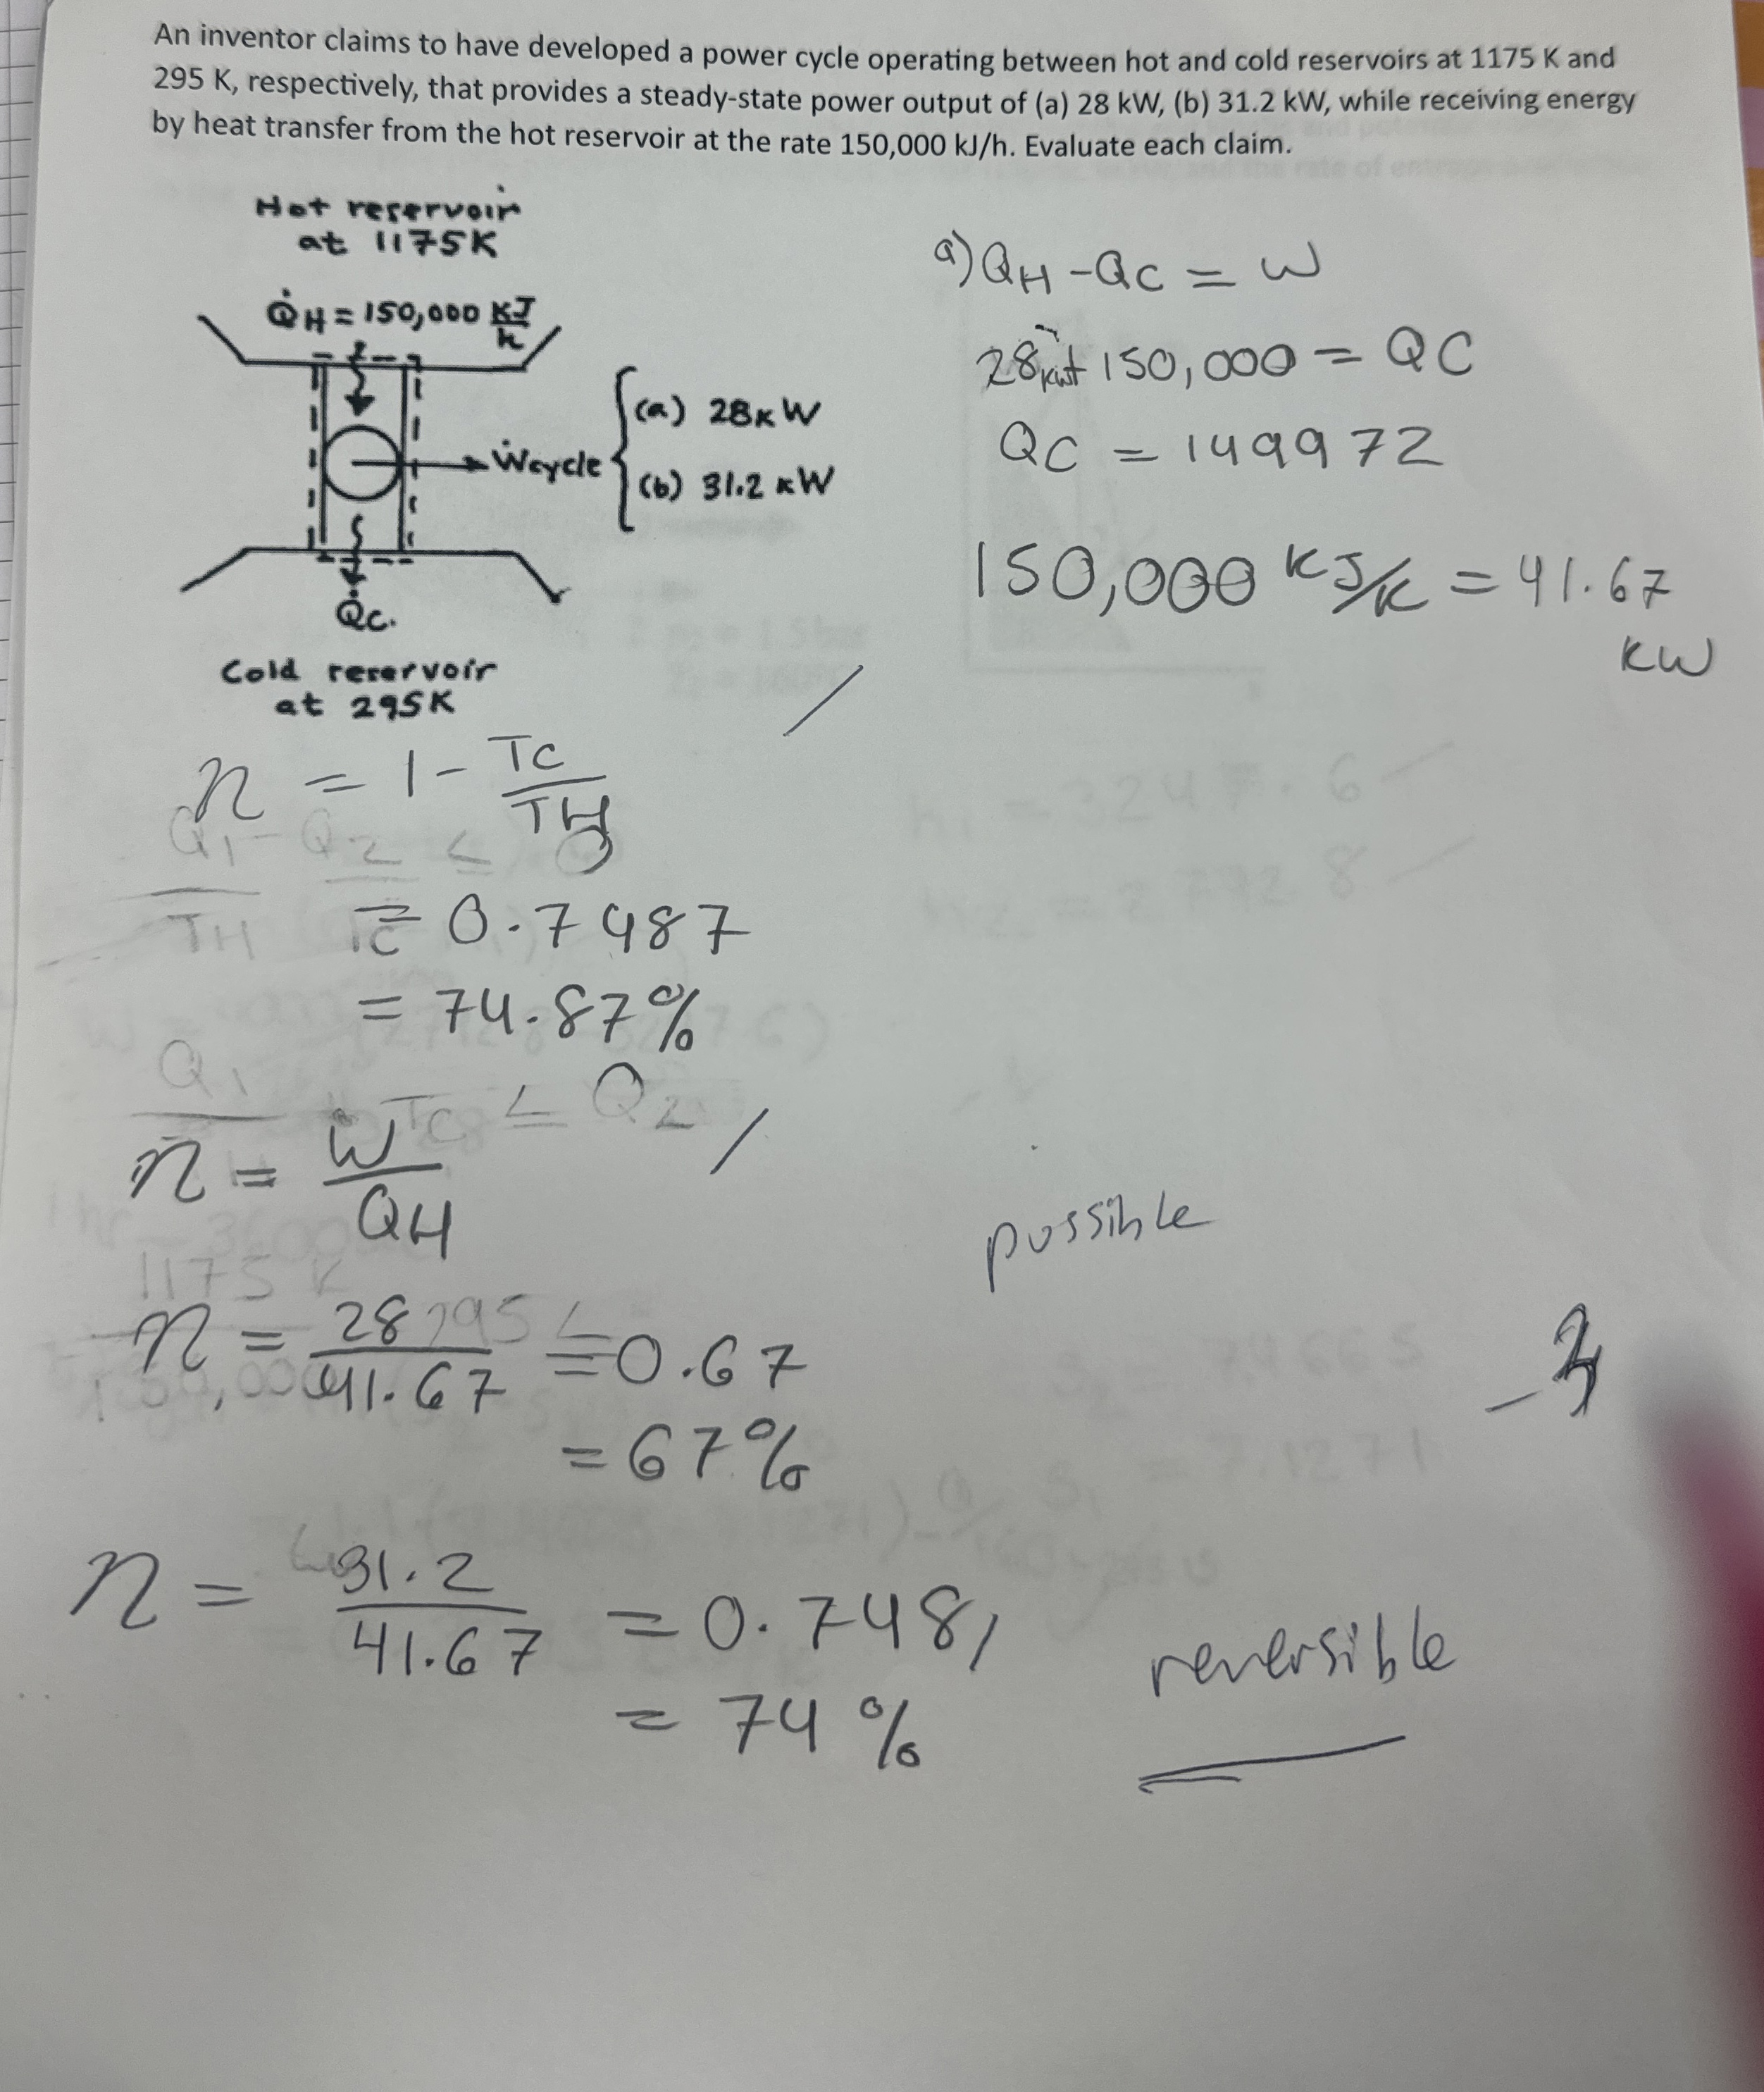 An inventor claims to have developed a power cycle operating between hot and cold reservoirs at 1175 K and
295 K, respectively, that provides a steady-state power output of (a) 28 kW, (b) 31.2 kW, while receiving energy
by heat transfer from the hot reservoir at the rate 150,000 kJ/h. Evaluate each claim.
Hot reservoir
at 1175K
Q̇H = 150,000 KJ/h
Ẇcycle
(a) 28kW
(b) 31.2 kW
Q̇c.
Cold reservoir
at 295K
a) QH - QC = W
28kW + 150,000 = QC
QC = 149972
150,000 KJ/K = 41.67
KW
η = 1 - TC/TH
Q1 - Q2 ≤ 0
TH TC
= 0.7487
= 74.87%
Q1 TC ≤ Q2
η = Ẇ/QH
possible
1175 K
295 ≤
η = 28/41.67 = 0.67
= 67%
η = 31.2/41.67 = 0.748,
= 74%
reversible